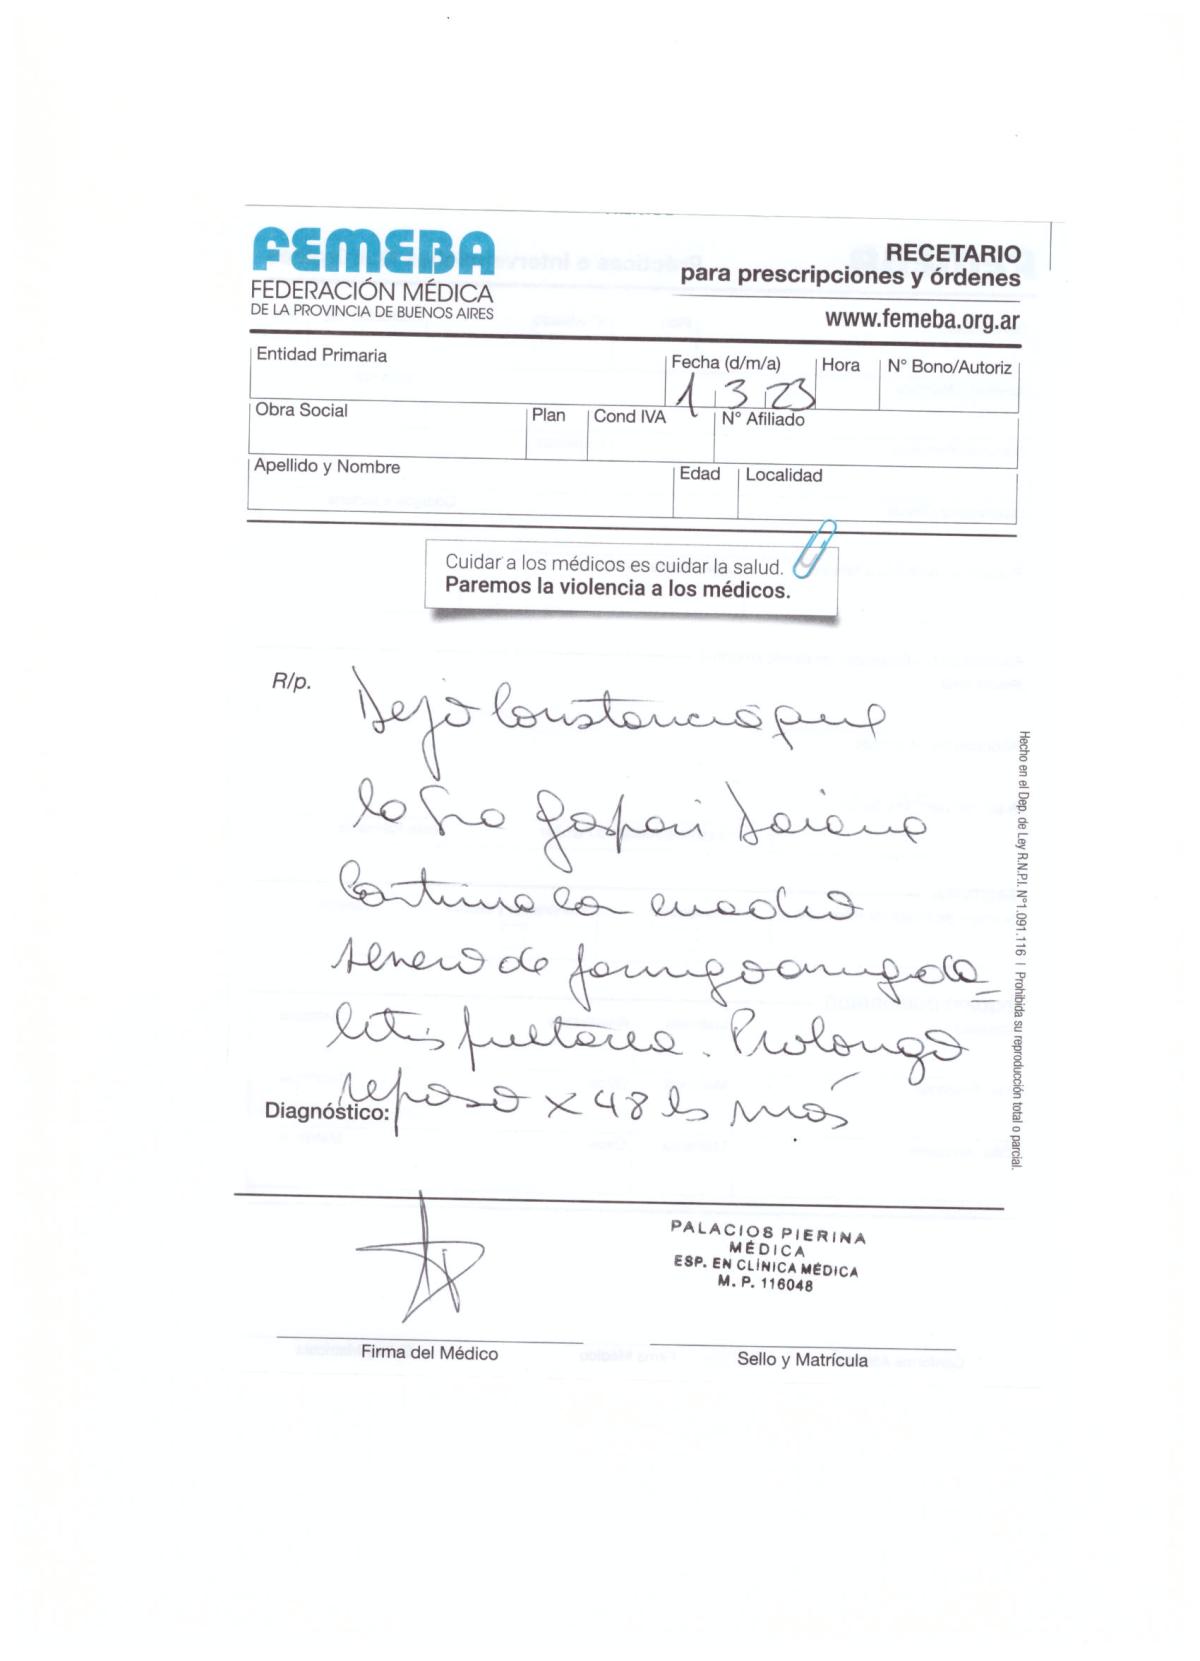 FEMEBA
FEDERACIÓN MÉDICA
DE LA PROVINCIA DE BUENOS AIRES
RECETARIO
para prescripciones y órdenes
www.femeba.org.ar
Entidad Primaria
Fecha (d/m/a)
Hora
N° Bono/Autoriz
1 3 23
Obra Social
Plan
Cond IVA
N° Afiliado
Apellido y Nombre
Edad
Localidad
Cuidar a los médicos es cuidar la salud.
Paremos la violencia a los médicos.
R/p.
Dejo constancia que
la Sra Gaspari Daiana
continua con cuadro
severo de faringoamigda=
litis pultacea. Prolongo
reposo x 48 hs más
Diagnóstico:
Hecho en el Dep. de Ley R.N.P.I. N°1.091.116 | Prohibida su reproducción total o parcial.
PALACIOS PIERINA
MÉDICA
ESP. EN CLÍNICA MÉDICA
M. P. 116048
Firma del Médico
Sello y Matrícula